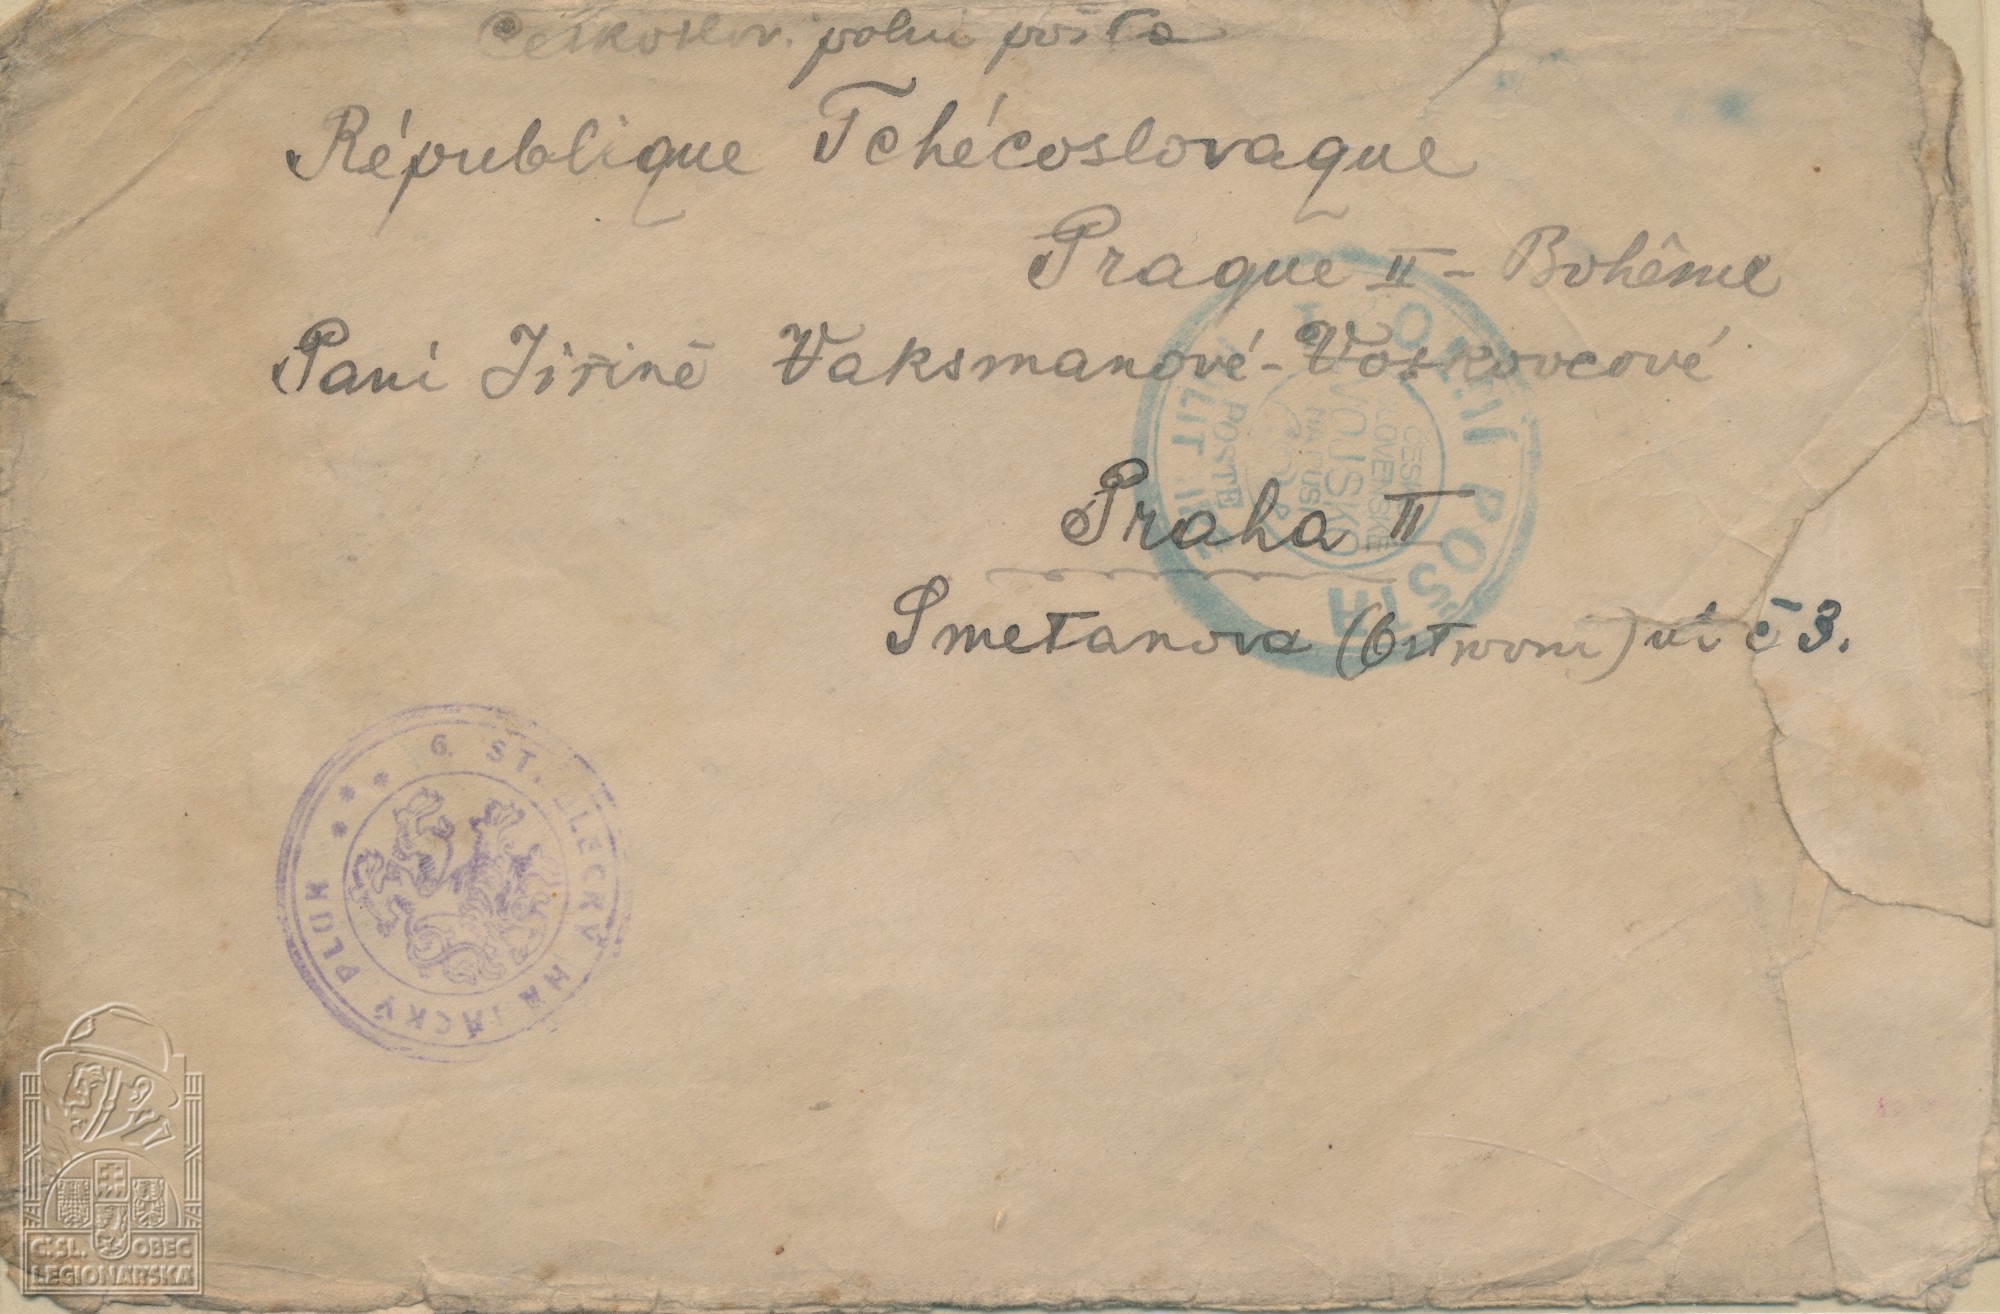 Českoslov. polní pošta
République Tchécoslovaque
Prague II - Bohême
Paní Jiřině Vaksmanové-Voskovcové
Praha II
Smetanova (Ostrovní) ul č 3.
POLNÍ POŠTA
POSTE MILITAIRE
ČESKO
SLOVENSKÉ
VOJSKO
NA RUSI
6. STŘELECKÝ HANÁCKÝ PLUK ***
Č.SL. OBEC
LEGIONÁŘSKÁ